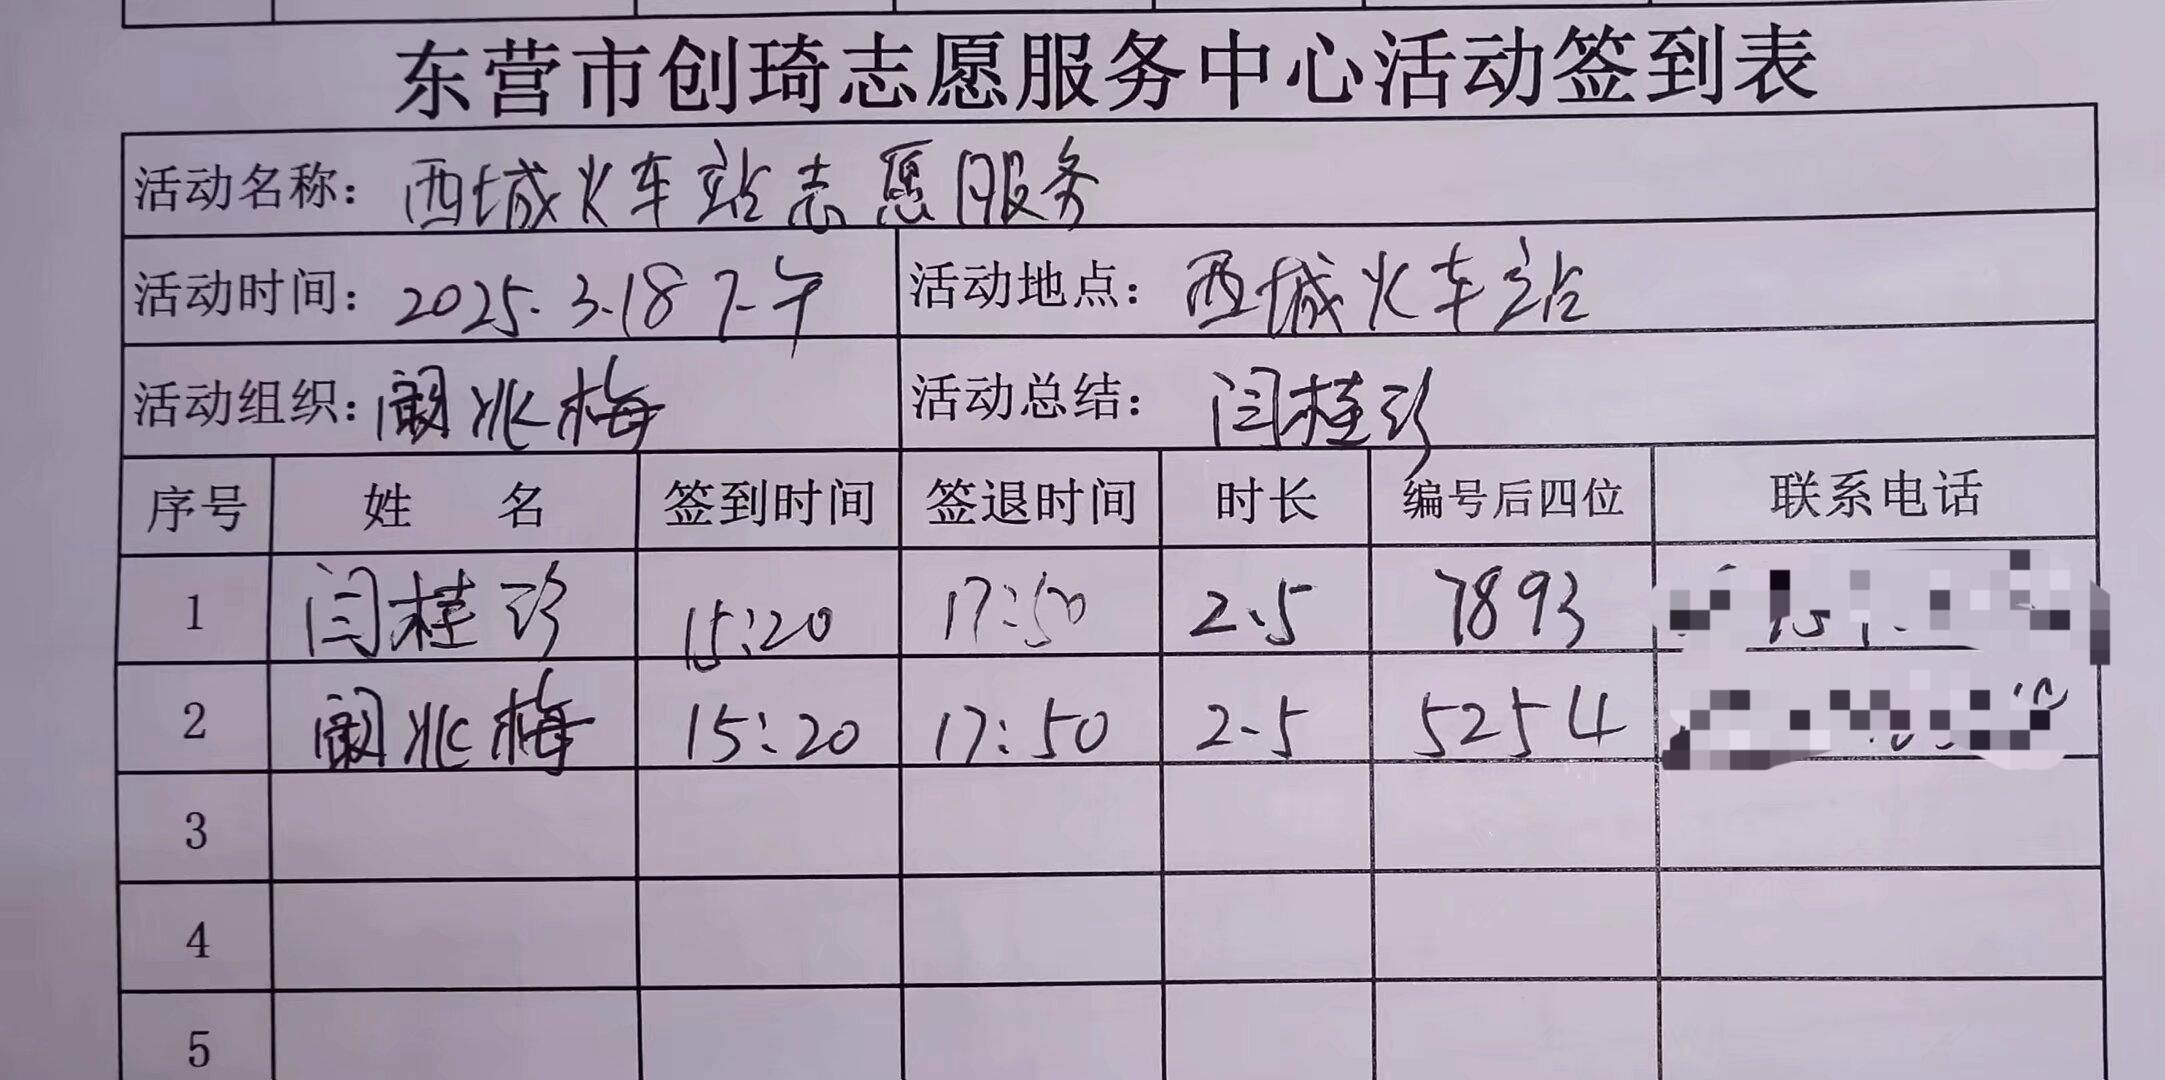 东营市创琦志愿服务中心活动签到表
活动名称：西城火车站志愿服务
活动时间：2025.3.18下午 活动地点：西城火车站
活动组织：阚兆梅 活动总结：闫桂珍
序号 姓 名 签到时间 签退时间 时长 编号后四位 联系电话
1 闫桂珍 15:20 17:50 2.5 7893
2 阚兆梅 15:20 17:50 2.5 5254
3
4
5